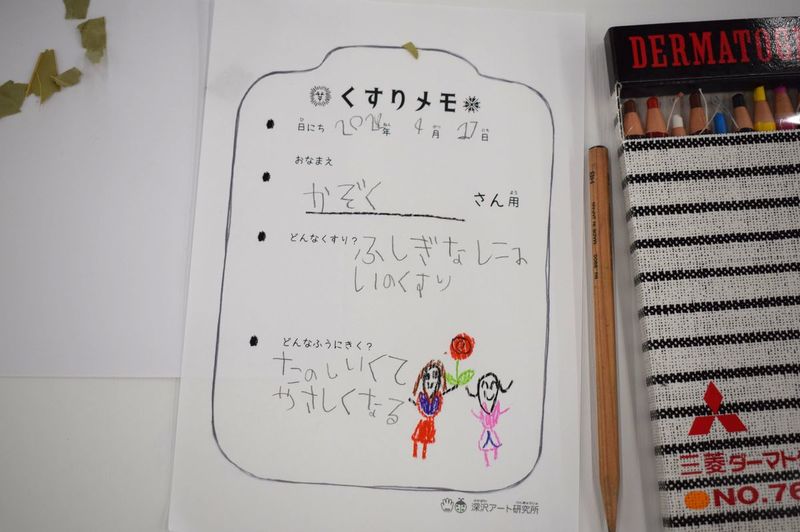 くすりメモ
日にち 2024年 4月 27日
おなまえ
かぞく さん用
どんなくすり? ふしぎなにお
いのくすり
どんなふうにきく?
たのしいくて
やさしくなる
深沢アート研究所
DERMATO
三菱ダーマト
NO.76